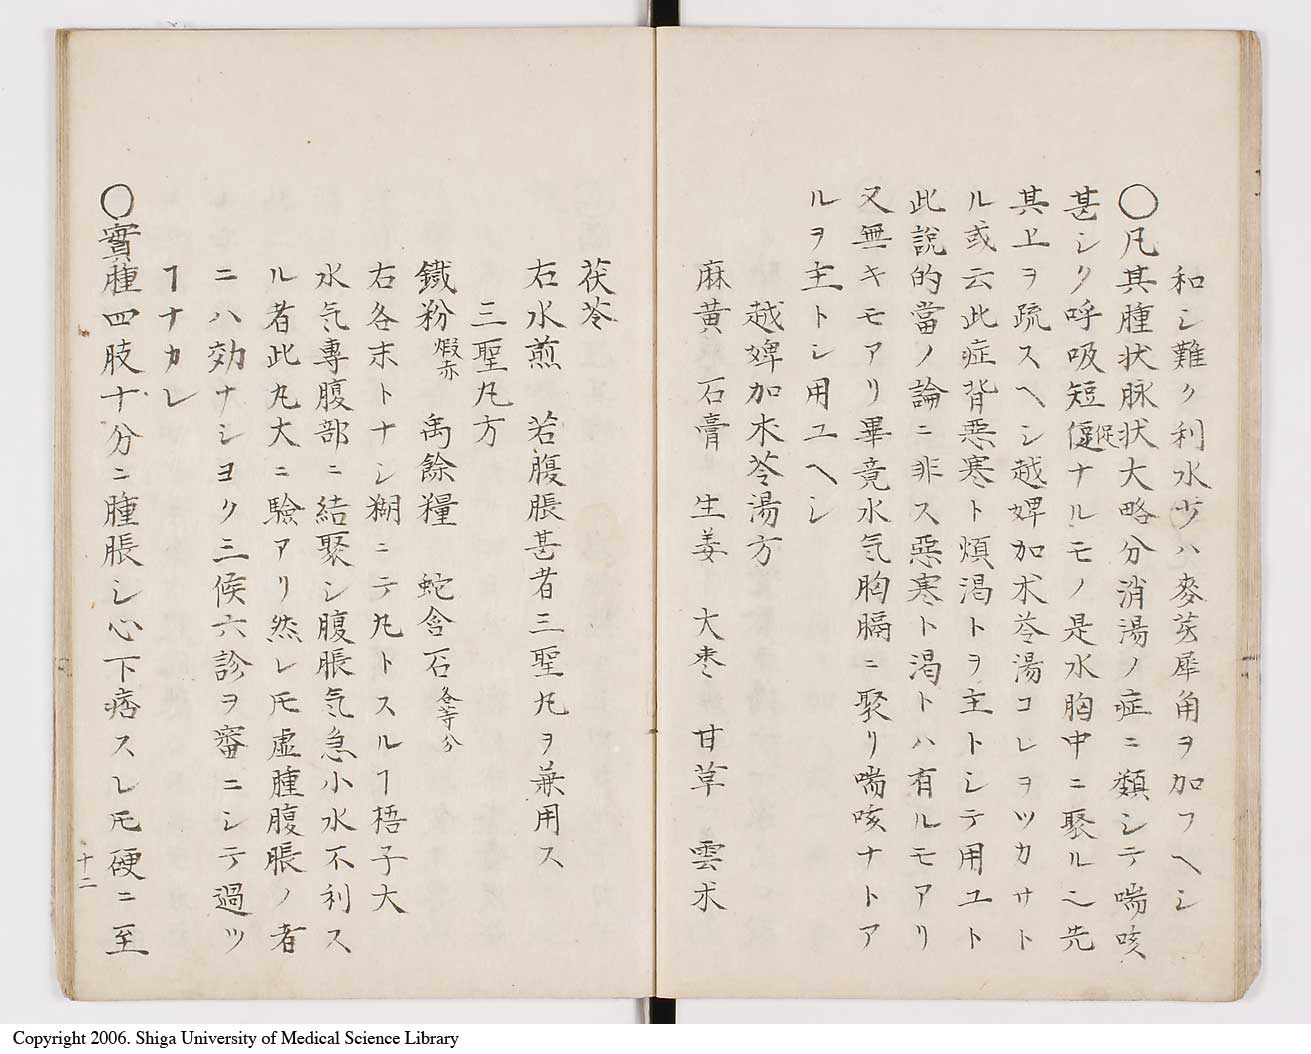 和シ難ク利水少ハ麥芽犀角ヲ加フヘシ
〇凡其腫状脉状大略分消湯ノ症ニ類シテ喘咳
甚シク呼吸短促ナルモノ是水胸中ニ聚ル也先
其上ヲ疏スヘシ越婢加朮苓湯コレヲツカサト
ル或云此症背惡寒ト煩渇トヲ主トシテ用ユト
此説的當ノ論ニ非ス惡寒ト渇トハ有ルモアリ
又無キモアリ畢竟水気胸膈ニ聚リ喘咳ナトア
ルヲ主トシ用ユヘシ
越婢加朮苓湯方
麻黄 石膏 生姜 大枣 甘草 雲朮
茯苓
右水煎 若腹脹甚者三聖丸ヲ兼用ス
三聖丸方
鐵粉煆赤 禹餘糧 蛇含石各等分
右各末トナシ糊ニテ丸トスルヿ梧子大
水気專腹部ニ結聚シ腹脹気急小水不利ス
ル者此丸大ニ驗アリ然レ𪜈虚腫腹脹ノ者
ニハ効ナシヨク三候六診ヲ審ニシテ過ツ
ヿナカレ
〇實腫四肢十分ニ腫脹シ心下痞スレ𪜈硬ニ至
十二
Copyright 2006. Shiga University of Medical Science Library